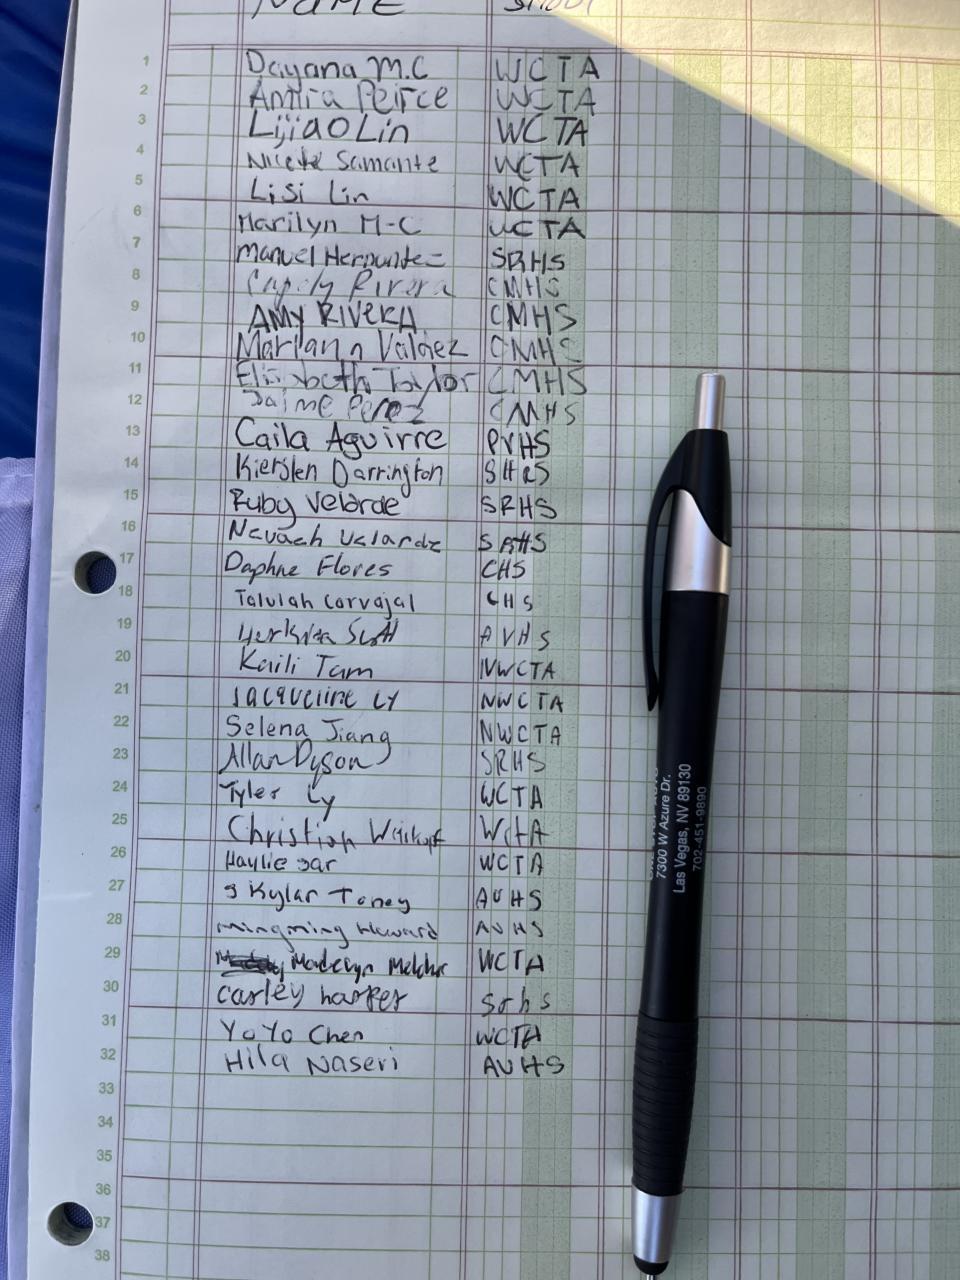 NAME
1 Dayana M.C WCTA
2 Amira Peirce WCTA
3 Lijiao Lin WCTA
4 Nicete Samante WCTA
5 Lisi Lin WCTA
6 Marilyn M-C WCTA
7 Manuel Hernandez SRHS
8 Rivera CMHS
9 AMY RIVERA CMHS
10 Mariann Valdez CMHS
11 Elizabeth Taylor CMHS
12 Jaime Perez CMHS
13 Caila Aguirre PVHS
14 Kiersten Darrington SHRS
15 Ruby Velarde SRHS
16 Nevaeh Velarde SRHS
17 Daphne Flores CHS
18 Talulah Carvajal CHS
19 AVHS
20 Kaili Tam NWCTA
21 Jacqueline Ly NWCTA
22 Selena Jiang NWCTA
23 Allan Dyson SRHS
24 Tyler Ly WCTA
25 Christian WCTA
26 Haylie WCTA
27 Skylar Toney AVHS
28 Mingming Howard AVHS
29 Madelyn WCTA
30 Carley harper Srhs
31 YoYo Chen WCTA
32 Hila Naseri AVHS
33
34
35
36
37
38
7300 W Azure Dr.
Las Vegas, NV 89130
702-451-9890